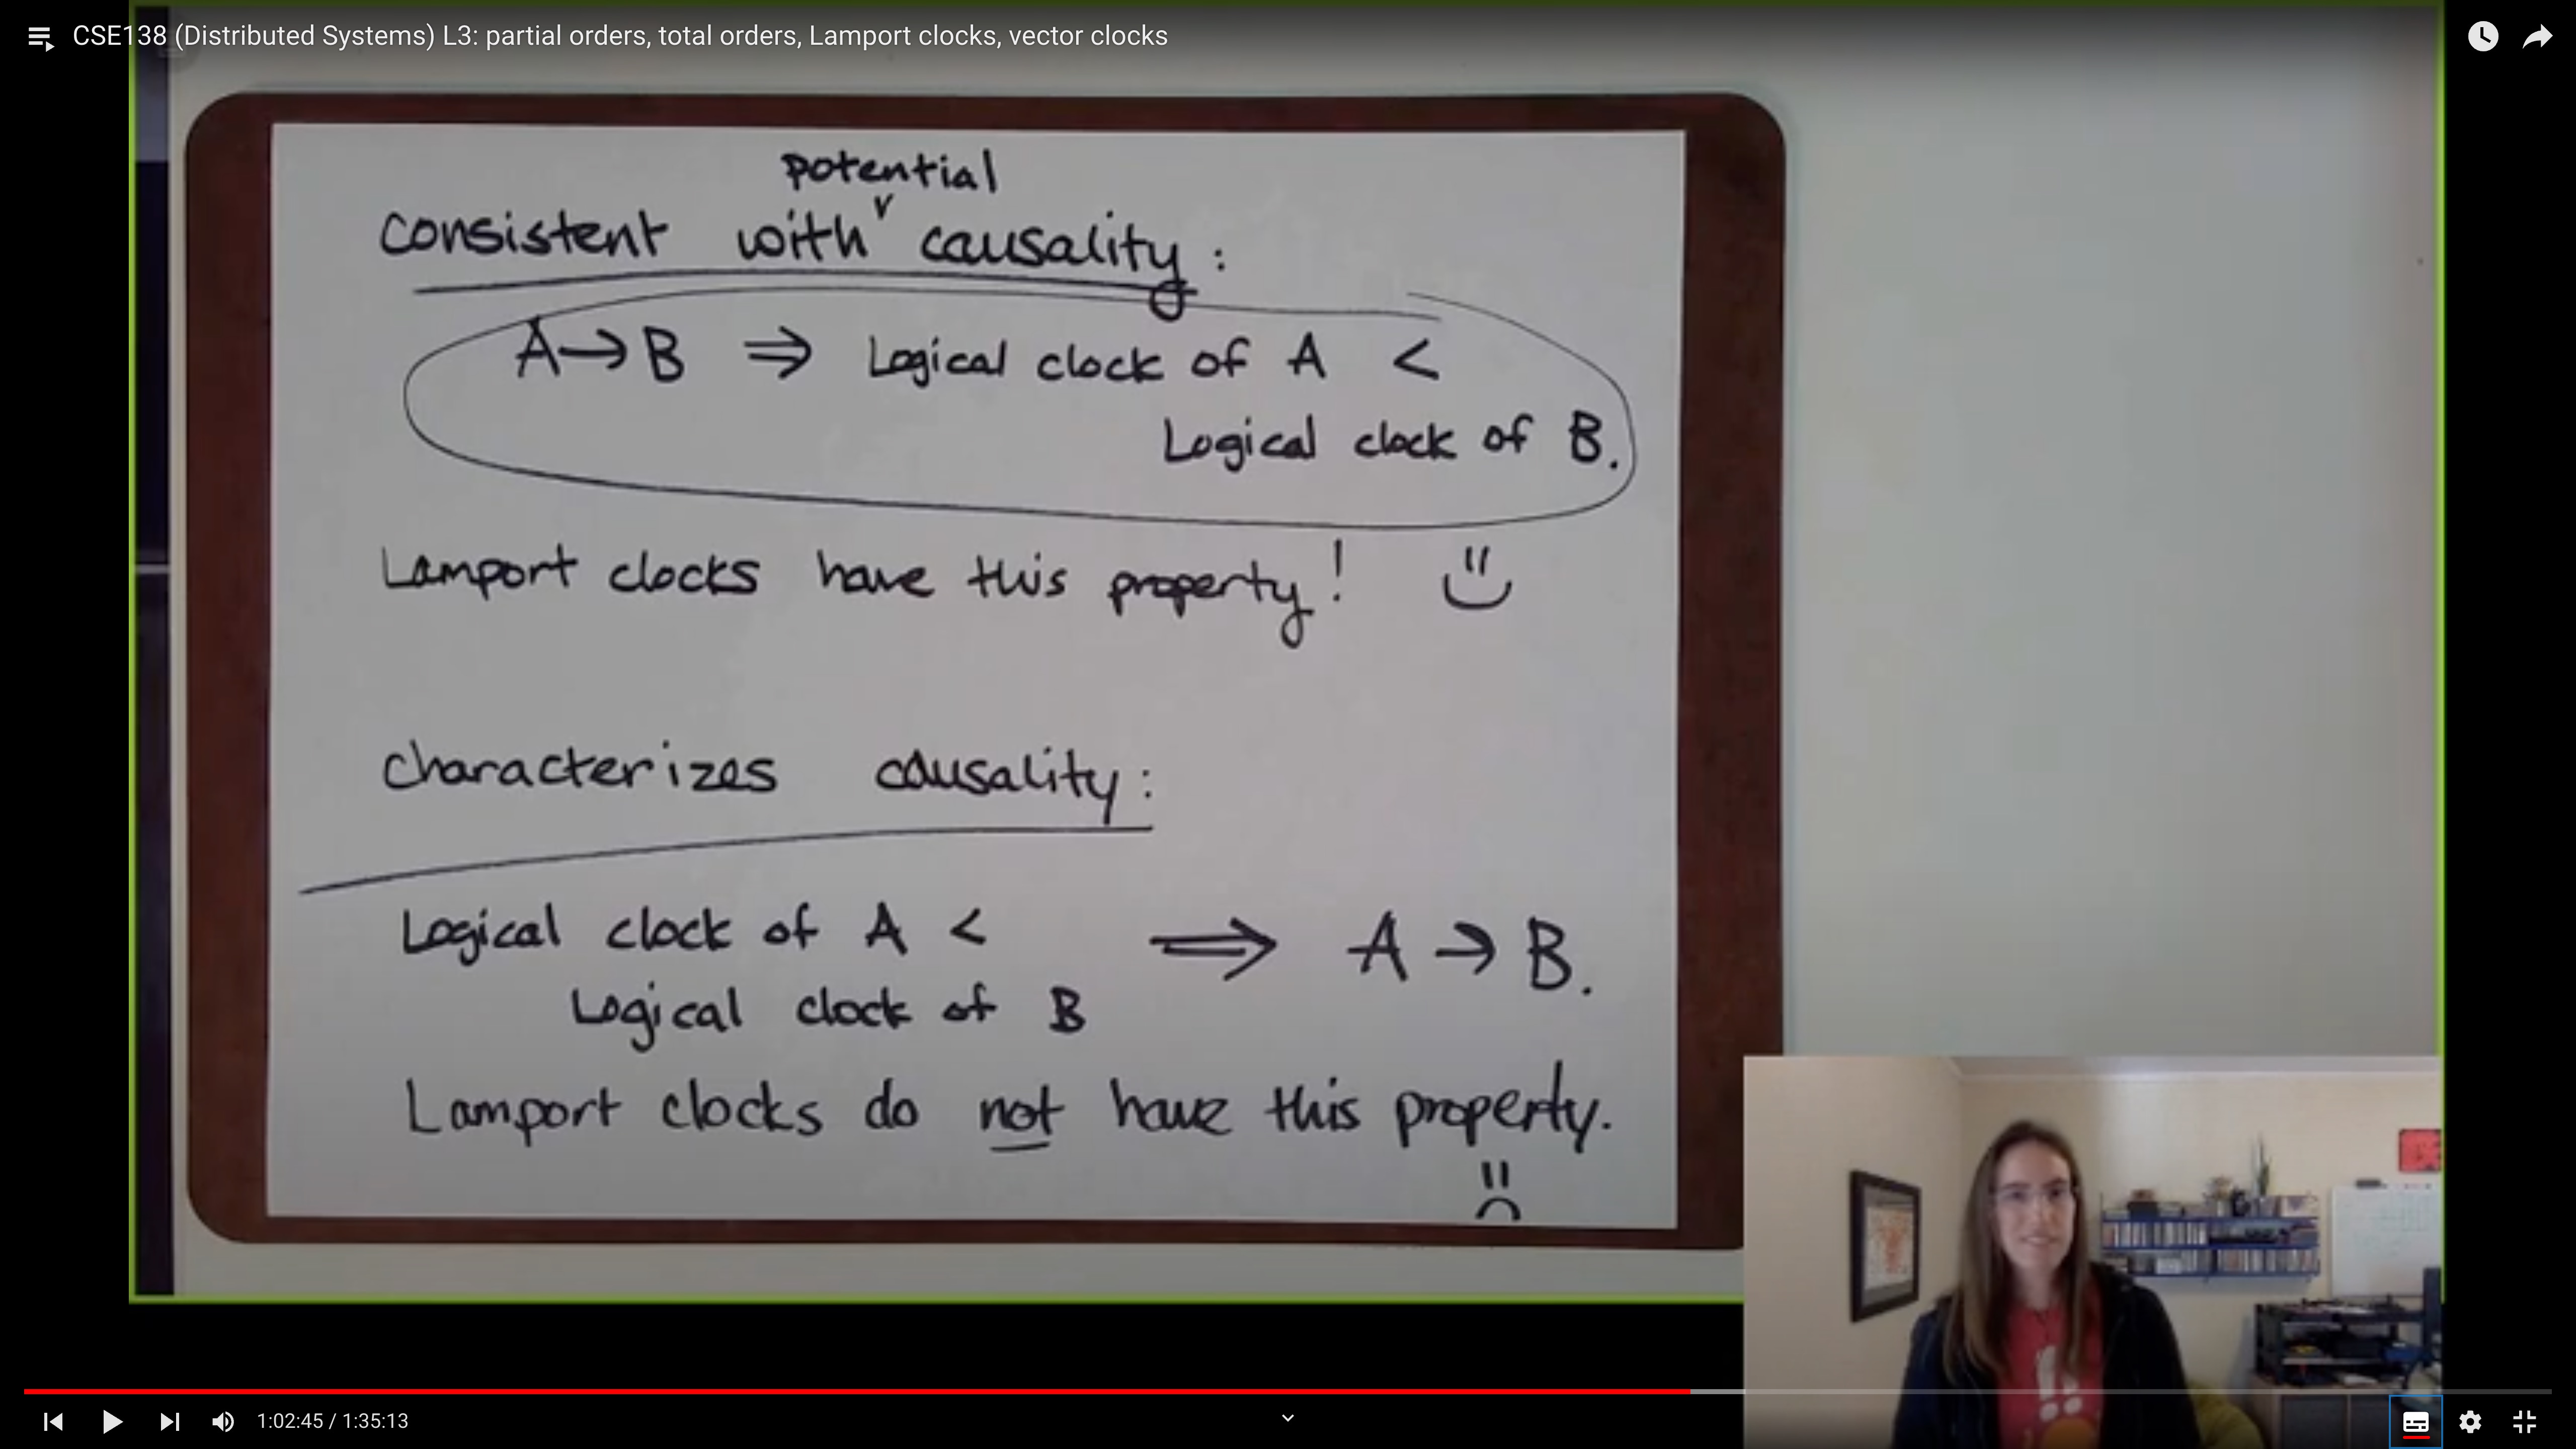 CSE138 (Distributed Systems) L3: partial orders, total orders, Lamport clocks, vector clocks
potential
consistent with causality:
A→B ⇒ Logical clock of A <
Logical clock of B.
Lamport clocks have this property!
characterizes causality:
Logical clock of A <
Logical clock of B
⇒ A → B.
Lamport clocks do not have this property.
1:02:45 / 1:35:13